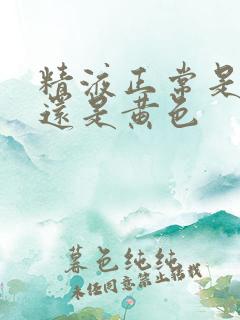 精液正常是
還是黃色
暮色纯纯
未经同意禁止转载